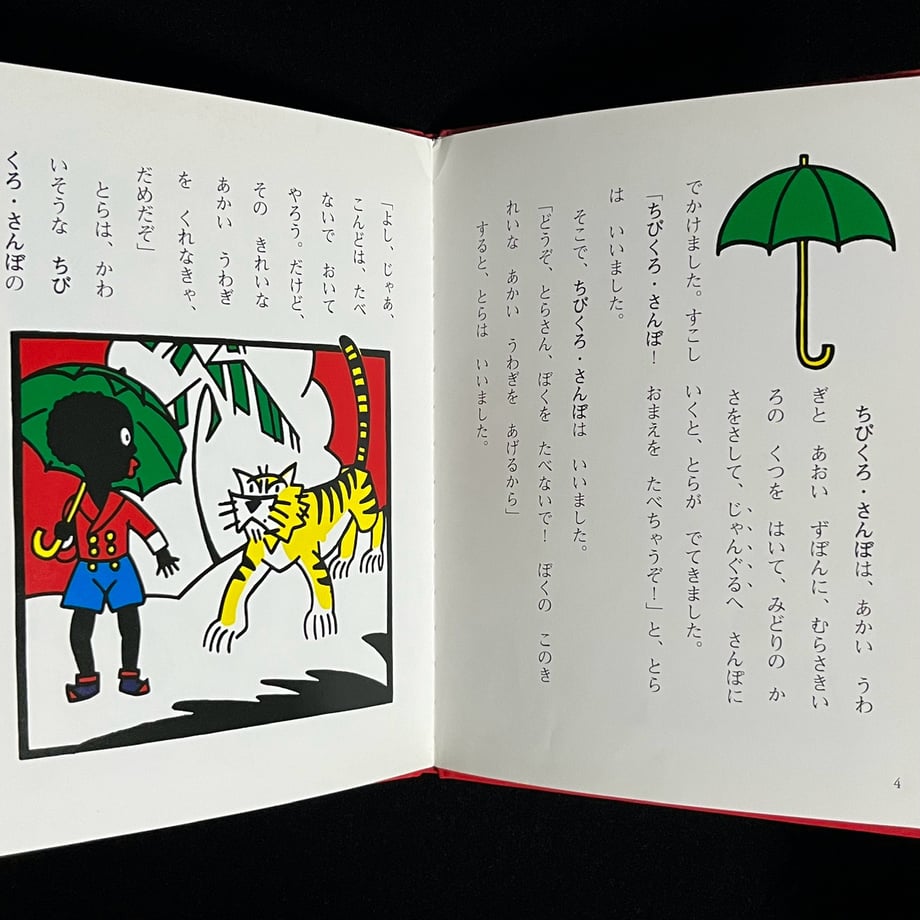 ちびくろ・さんぼは、あかい うわ
ぎと あおい ずぼんに、むらさきい
ろの くつを はいて、みどりの か
さをさして、じゃんぐるへ さんぽに
でかけました。すこし いくと、とらが でてきました。
「ちびくろ・さんぼ! おまえを たべちゃうぞ!」と、とら
は いいました。
そこで、ちびくろ・さんぼは いいました。
「どうぞ、とらさん、ぼくを たべないで! ぼくの このき
れいな あかい うわぎを あげるから」
すると、とらは いいました。
4
「よし、じゃあ、
こんどは、たべ
ないで おいて
やろう。だけど、
その きれいな
あかい うわぎ
を くれなきゃ、
だめだぞ」
とらは、かわ
いそうな ちび
くろ・さんぼの